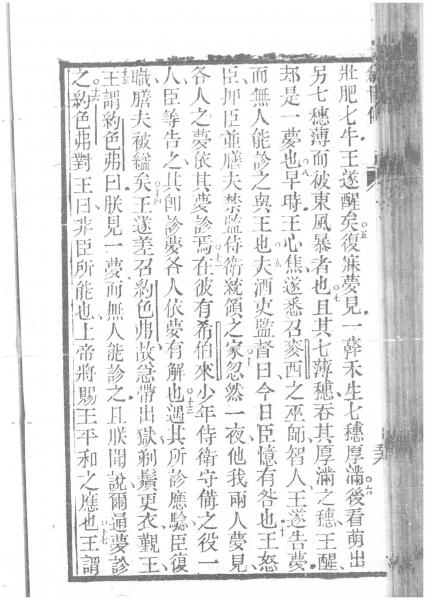 壯肥七牛王遂醒矣○五復寐夢見一莽禾生七穗厚滿○六後看萌出
另七穗薄而被東風暴者也○七且其七薄穗吞其厚滿之穗王醒
却是一夢也○八早時王心焦遂悉召麥西之巫師智人王遂告夢
而無人能診之與王也○九夫酒吏監督曰今日臣憶有咎也○十王怒
臣押臣並膳夫禁監侍衛統領之家○十一忽然一夜他我兩人夢見
各人之夢依其夢診焉○十二在彼有希伯來少年侍衛守備之役一
人臣等告之其卽診夢各人依夢有解也○十三遇其所診應驗臣復
職膳夫被縊矣○十四王遂差召約色弗故急帶出獄剃鬚更衣覲王
○十五王謂約色弗曰朕見一夢而無人能診之且朕聞說爾通夢診
之○十六約色弗對王曰非臣所能也上帝將賜王平和之應也○十七王謂